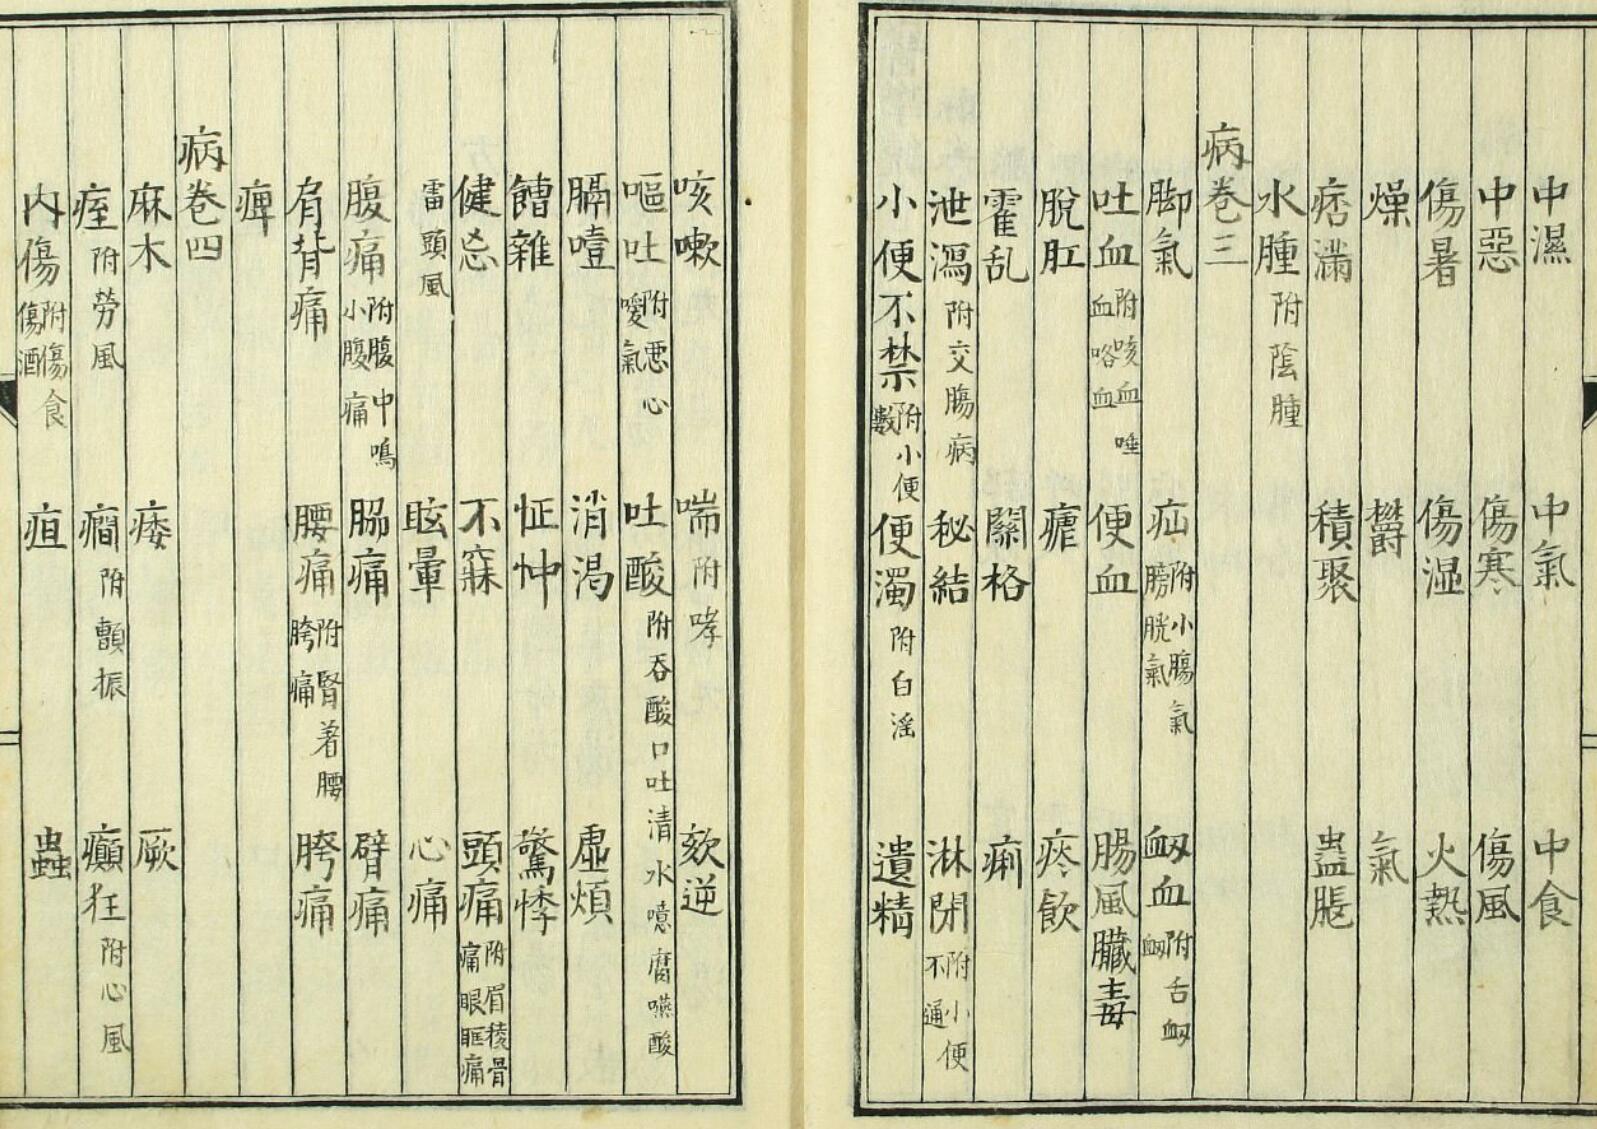 中濕 中氣 中食
中惡 傷寒 傷風
傷暑 傷湿 火熱
燥 欝 氣
痞滿 積聚 蠱脹
水腫 附陰腫
病卷三
脚氣 疝 附小腸氣膀胱氣 衂血 附舌衂
吐血 附咳血唾血咯血 便血 腸風臟毒
脫肛 瘧 痰飲
霍乱 關格 痢
泄瀉 附交腸病 秘結 淋閉 附小便不通
小便不禁 附小便數 便濁 附白淫 遺精
咳嗽 喘 附哮 欬逆
嘔吐 附悪心噯氣 吐酸 附吞酸口吐清水噫腐嚥酸
膈噎 消渴 虛煩
饐雜 怔忡 驚悸
健忘 不寐 頭痛 附眉稜骨痛眼眶痛
雷頭風 眩暈 心痛
腹痛 附腹中鳴小腹痛 脇痛 臂痛
肩背痛 腰痛 附腎著腰胯痛 胯痛
痺
病卷四
麻木 痿 厥
痓 附勞風 癎 附顫振 癲狂 附心風
內傷 附傷食傷酒 疸 蟲